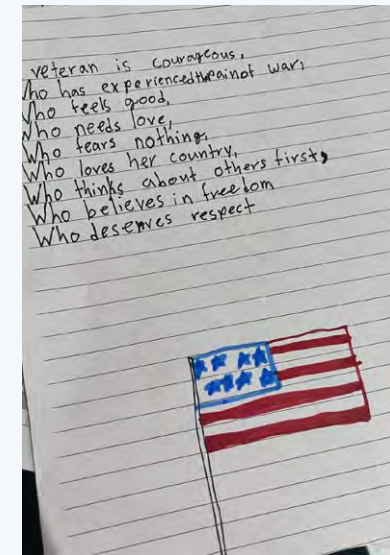 veteran is courageous,
Who has experienced the pain of war,
Who feels good,
Who needs love,
Who fears nothing,
Who loves her country,
Who thinks about others first,
Who believes in freedom
Who deserves respect